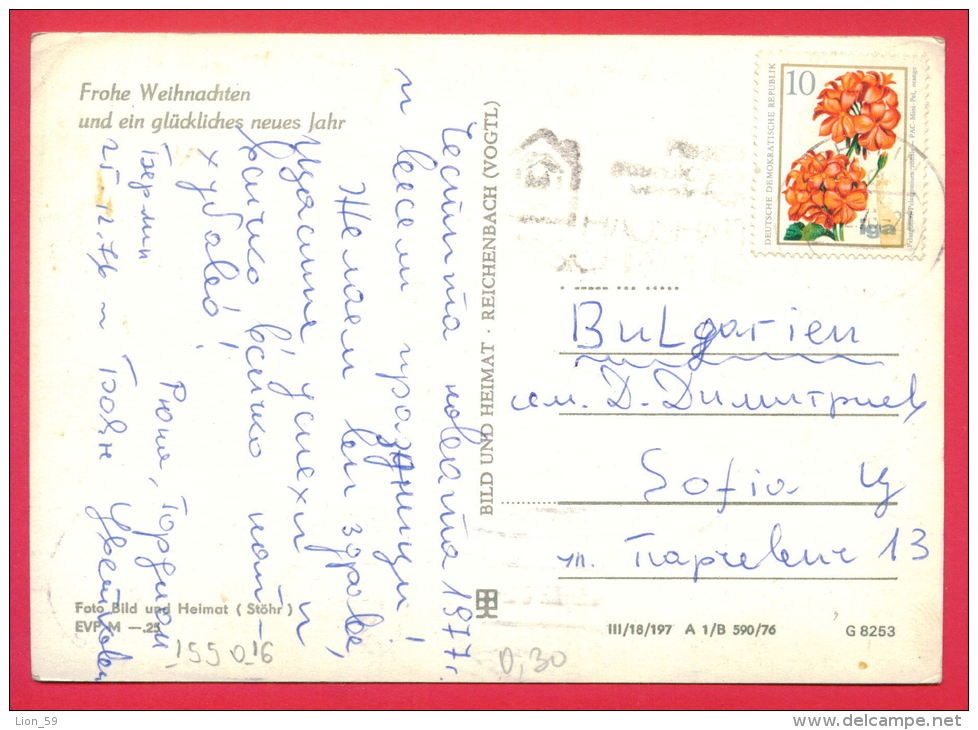 Frohe Weihnachten
und ein glückliches neues Jahr
Честита новата 1977 г.
и весели празници!
Желаем Ви здраве,
щастие, успехи и
всичко най-
хубаво!
Берлин
25.12.76
Боян Цветков
BILD UND HEIMAT · REICHENBACH (VOGTL)
DEUTSCHE DEMOKRATISCHE REPUBLIK
10
iga
Bulgarien
сем. Д. Димитриев
Sofia Ц
ул. Парчевич 13
Foto Bild und Heimat (Stöhr)
EVP M —.25
III/18/197 A 1/B 590/76
G 8253
155016
0,30
Lion_59
www.delcampe.net